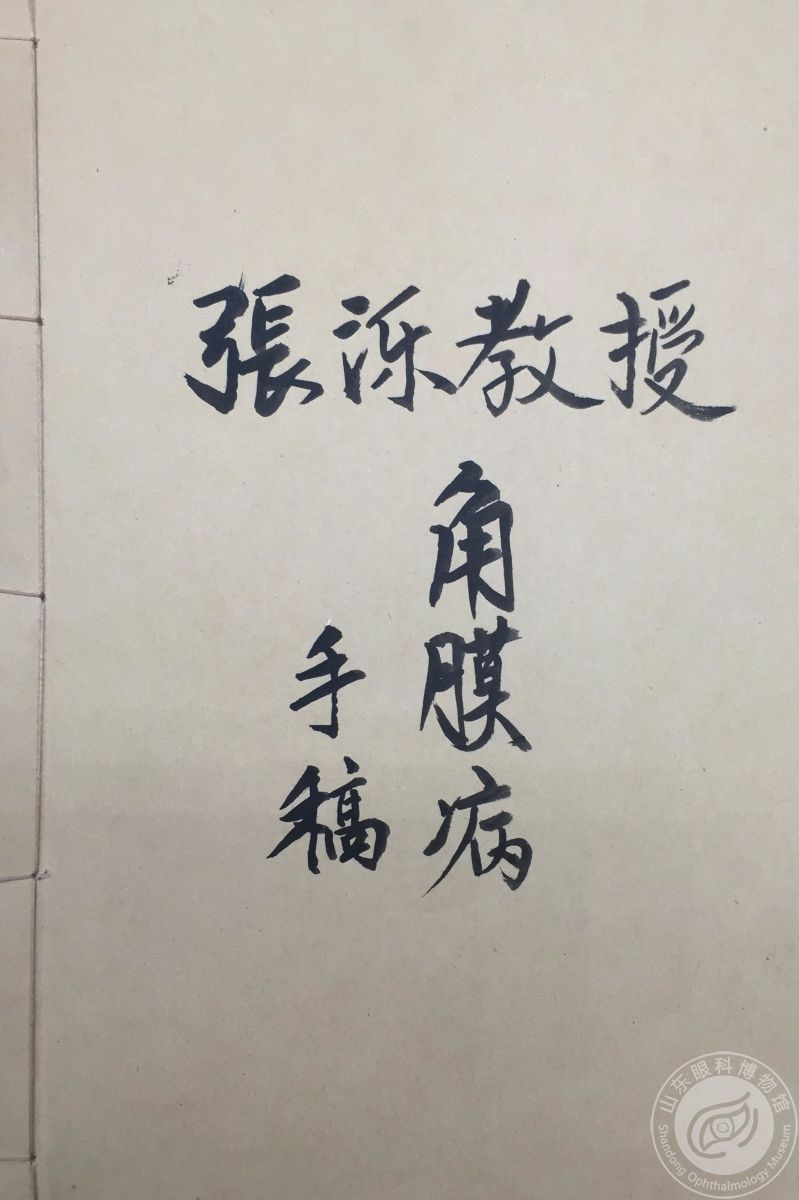 張泺教授
角膜病
手稿
山东眼科博物馆
Shandong Ophthalmology Museum